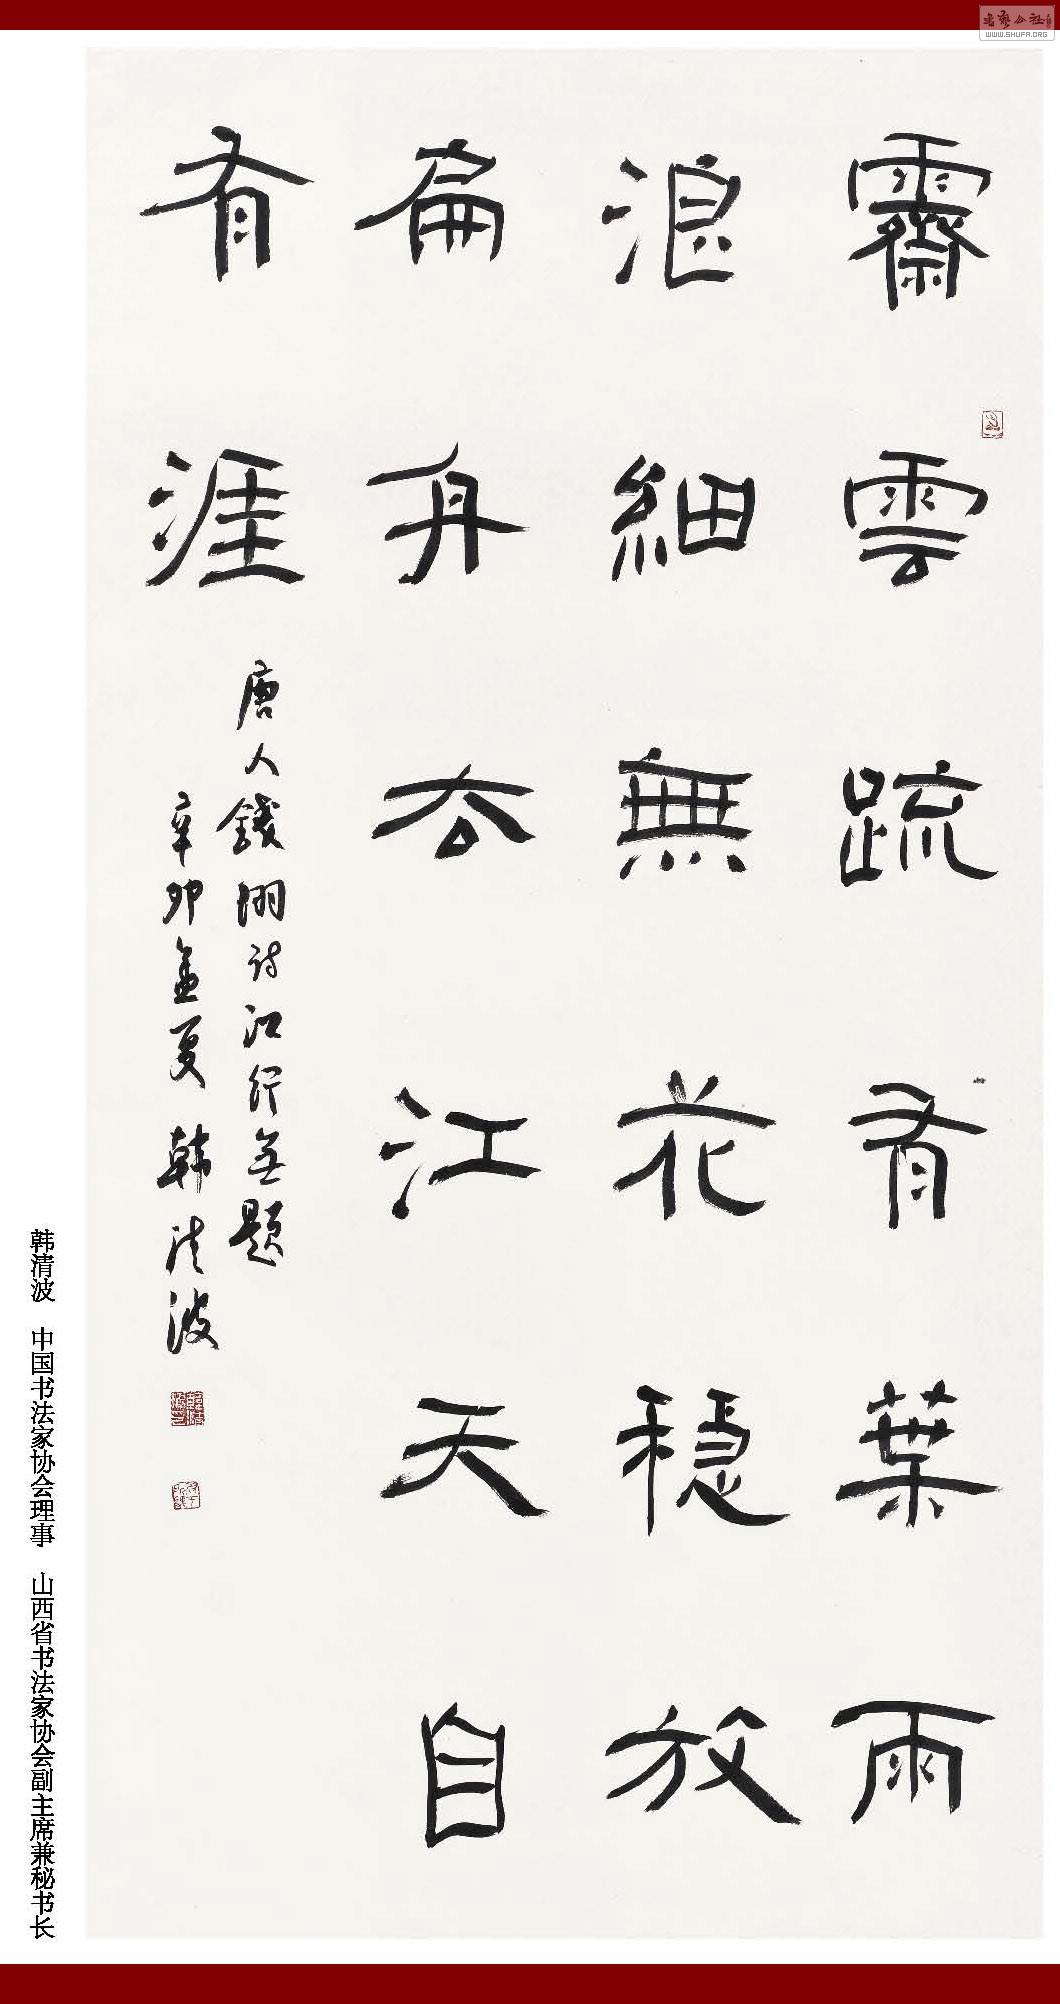 霽雲疏有葉雨
浪細無花穩放
扁舟去江天自
有涯
唐人錢珝詩江行無題
辛卯孟夏韓清波
韩清波 中国书法家协会理事 山西省书法家协会副主席兼秘书长
书艺公社
WWW.SHUFA.ORG